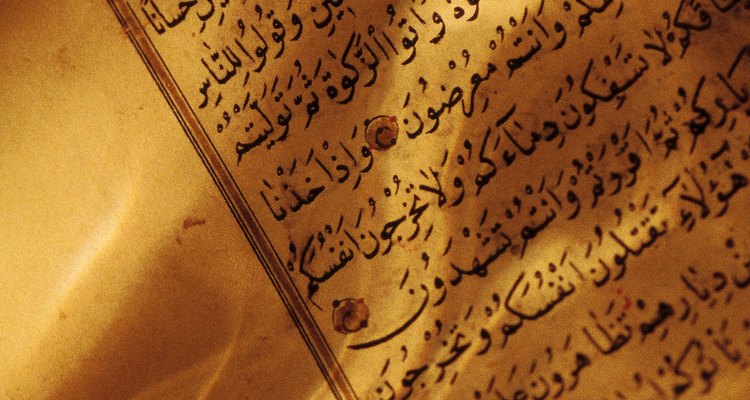 وَقُولُوا لِلنَّاسِ
وَاٰتُوا الزَّكٰوةَ ثُمَّ تَوَلَّيْتُمْ
وَاَنْتُمْ مُعْرِضُونَ وَاِذْ اَخَذْنَا
لَا تَسْفِكُونَ دِمَاءَكُمْ وَلَا تُخْرِجُونَ اَنْفُسَكُمْ
ثُمَّ اَقْرَرْتُمْ وَاَنْتُمْ تَشْهَدُونَ
هٰؤُلَاءِ تَقْتُلُونَ اَنْفُسَكُمْ وَتُخْرِجُونَ
دِيَارِهِمْ تَظَاهَرُونَ